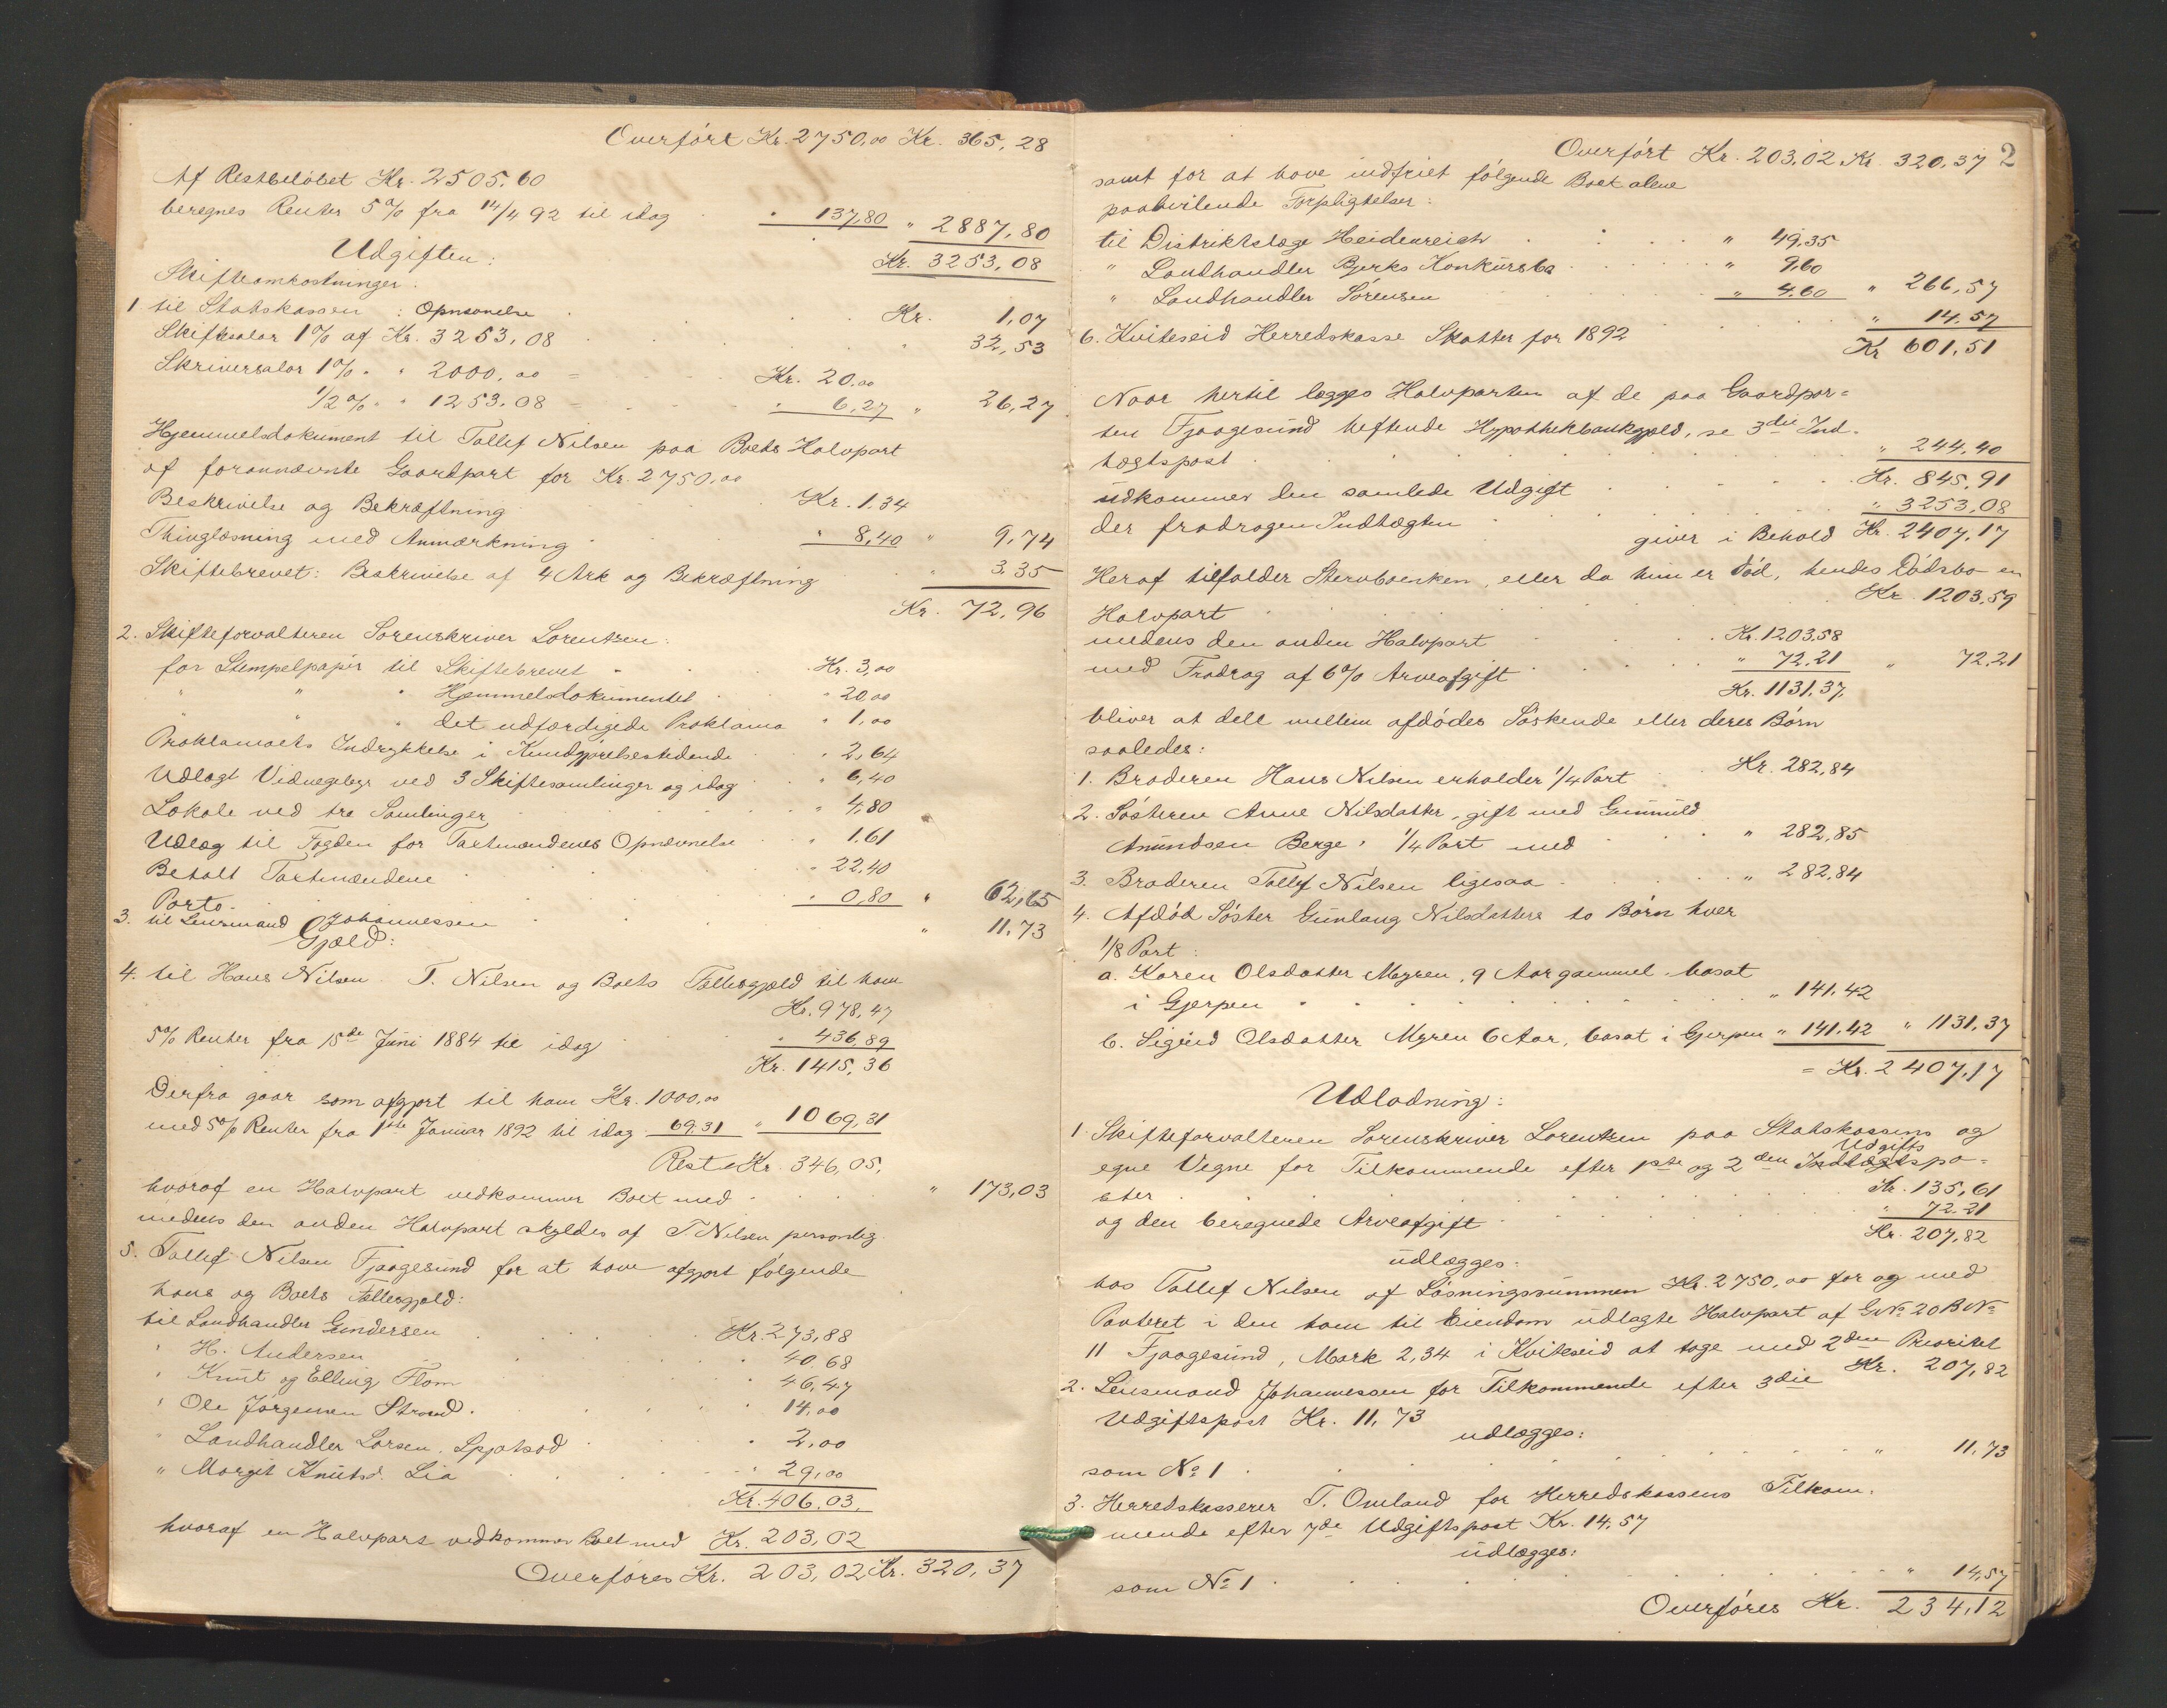 Overført Kr. 2750,00 Kr. 365,28
Af Restbeløbet Kr. 2505.60
beregnes Renter 5% fra 14/4 92 til idag " 137,80 " 2887,80
Kr. 3253,08
Udgiften:
Skifteomkostninger.
1 til Statskassen: Opnævnelse Kr. 1,07
Skiftesalær 1% af Kr. 3253,08 " 32,53
Skriversalær 1% " " 2000,00 = Kr. 20.00
1/2% " " 1253.08 = " 6,27 " 26,27
Hjemmelsdokument til Tallef Nilsen paa Boets Halvpart
af forannævnte Gaardpart for Kr. 2750.00
Beskrivelse og Bekræftning Kr. 1.34
Thinglæsning med Anmærkning " 8,40 " 9,74
Skiftebrevet: Beskrivelse af 4 Ark og Bekræftning " 3,35
Kr. 72,96
2. Skifteforvalteren Sorenskriver Lorentzen:
for Stempelpapir til Skiftebrevet Kr. 3,00
" " " Hjemmelsdokumentet " 20,00
" " " det udfærdigede Proklama " 1,00
Proklamaets Indrykkelse i Kundgjørelsestidende " 2,64
Udlagt Vidnegebyr ved 3 Skiftesamlinger og idag " 6,40
Lokale ved tre Samlinger " 4,80
Udlæg til Fogden for Taxtmændenes Opnævnelse " 1.61
Betalt Taxtmændene " 22,40
Porto " 0,80 " 62,65
3. til Lensmand Johannessen " 11.73
Gjæld:
4. til Hans Nilsen. T. Nilsen og Boets Fællesgjæld til ham
Kr. 978,47
5% Renter fra 15de Juni 1884 til idag " 436,89
Kr. 1415,36
Derfra gaar som afgjort til ham Kr. 1000,00
med 5% Renter fra 1ste Januar 1892 til idag 69.31 " 1069,31
Rest Kr. 346,05.
hvoraf en Halvpart vedkommer Boet med " 173,03
medens den anden Halvpart skyldes af T Nilsen personlig.
5. Tallef Nilsen Fjaagesund for at have afgjort følgende
hans og Boets Fællesgjæld:
til Landhandler Gundersen Kr. 273,88
" H. Andersen " 40.68
" Knut og Elling Flom " 46,47
" Ole Jørgensen Strand " 14,00
" Landhandler Larsen, " 2,00
" Margit Knutsd. Lia " 29,00
Kr. 406.03.
hvoraf en Halvpart vedkommer Boet med Kr. 203,02
Overføres Kr. 203,02 Kr. 320,37
Overført Kr. 203,02 Kr. 320,37 2
samt for at have indfriet følgende Boet alene
paahvilende Forpligtelser:
til Distriktslæge Heidenreich " 49,35
" Landhandler Bjerks Konkursbo " 9,60
" Landhandler Sørensen " 4.60 " 266,57
6. Kviteseid Herredskasse Skatter for 1892 " 14.57
Kr 601,51
Naar hertil lægges Halvparten af de paa Gaardpar-
ten Fjaagesund heftende Hypothekbankgjæld, se 3die Ind-
tægtspost " 244,40
udkommer den samlede Udgift Kr. 845,91
der fradragen Indtægten " 3253,08
giver i Behold Kr. 2407,17
Heraf tilfalder Stervboenken, eller da hun er død, hendes Dødsbo en
Halvpart Kr. 1203,59
medens den anden Halvpart Kr. 1203.58
med Fradrag af 6% Arveafgift " 72,21 " 72,21
Kr. 1131.37.
bliver at dele mellem afdødes Søskende eller deres Børn
saaledes:
1. Broderen Hans Nilsen erholder 1/4 Part Kr. 282,84
2. Søsteren Anne Nilsdatter, gift med Gunnuld
Amundsen Berge, 1/4 Part med " 282,85
3. Broderen Tallef Nilsen ligesaa " 282,84
4. Afdød Søster Gunlaug Nilsdatters to Børn hver
1/8 Part:
a. Karen Olsdatter Myren, 9 Aar gammel, bosat
i Gjerpen " 141.42
b. Sigrid Olsdatter Myren 6 Aar, bosat i Gjerpen " 141.42 " 1131,37
= Kr. 2407,17
Udlodning:
1. Skifteforvalteren Sorenskriver Lorentzen paa Statskassens og
egne Vegne for Tilkommende efter 1ste og 2den Udgiftspo-
ster Kr. 135,61
og den beregnede Arveafgift " 72.21
Kr. 207,82
udlægges:
hos Tallef Nilsen af Løsningssummen Kr. 2750,00 for og med
Panteret i den ham til Eiendom udlagte Halvpart af GNo 20 BNo
11 Fjaagesund, Mark 2,34 i Kviteseid at tage med 2den Prioritet
Kr. 207,82
2. Lensmand Johannessen for Tilkommende efter 3die
Udgiftspost Kr. 11,73
udlægges:
som No 1 " 11.73
3. Herredskasserer T. Omland for Herredskassens Tilkom-
mende efter 7de Udgiftspost Kr. 14,57
udlægges:
som No 1 " 14,57
Overføres Kr. 234,12